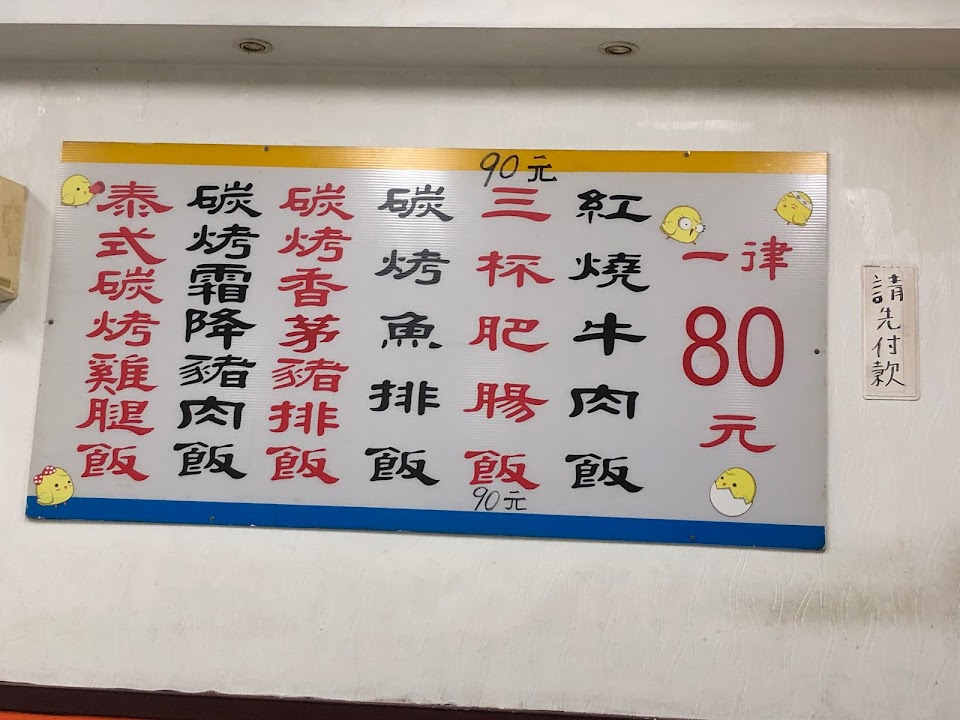 請先付款
一律
80
元
紅燒牛肉飯
90元
三杯肥腸飯
90元
碳烤魚排飯
碳烤香茅豬排飯
碳烤霜降豬肉飯
泰式碳烤雞腿飯